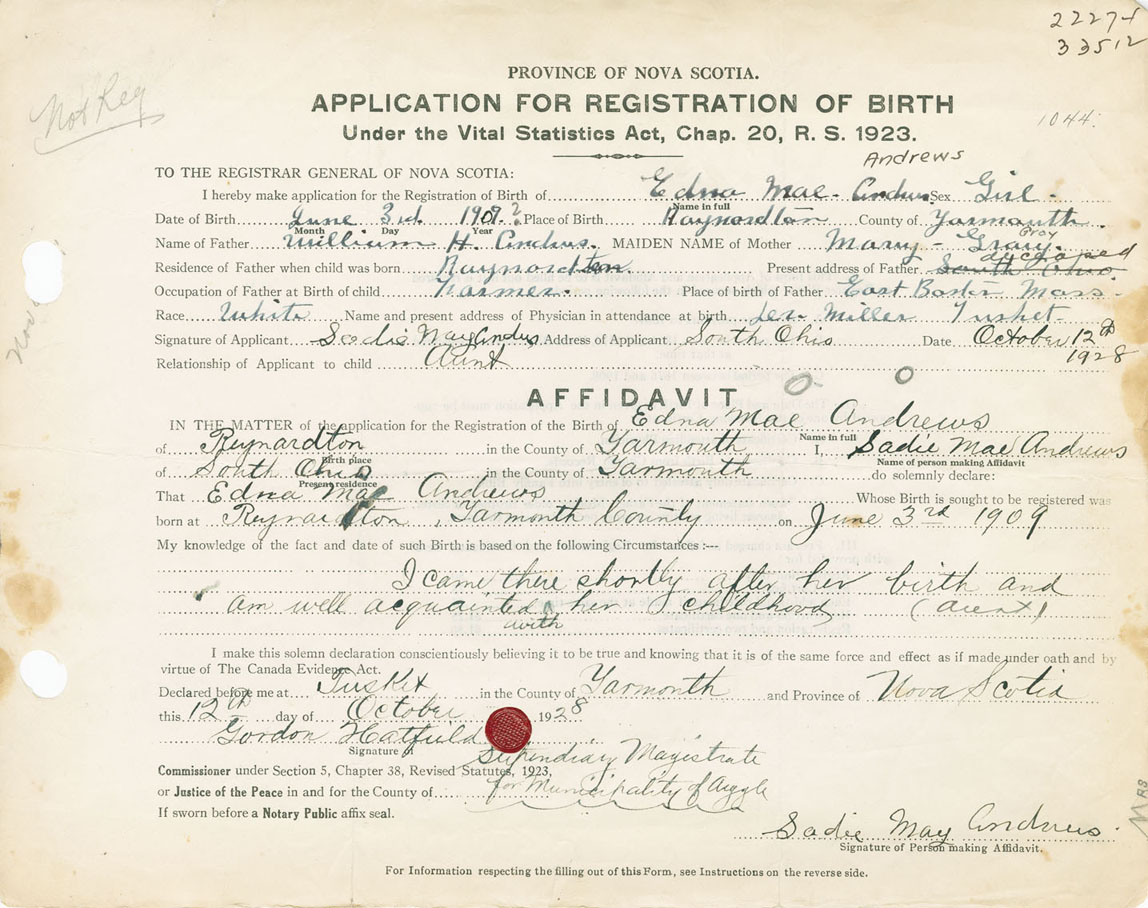 22274
33512
PROVINCE OF NOVA SCOTIA.
Not Reg
APPLICATION FOR REGISTRATION OF BIRTH
1044.
Under the Vital Statistics Act, Chap. 20, R. S. 1923.
Andrews
TO THE REGISTRAR GENERAL OF NOVA SCOTIA:
I hereby make application for the Registration of Birth of Edna Mae Andrus Sex Girl
Name in full
Date of Birth June 3rd 1909? Place of Birth Raynardton County of Yarmouth.
Month Day Year Gray
Name of Father William H. Andrus. MAIDEN NAME of Mother Mary - Gray.
deceased
Residence of Father when child was born Raynardton. Present address of Father South Ohio
Occupation of Father at Birth of child Farmer. Place of birth of Father East Boston Mass.
Race White Name and present address of Physician in attendance at birth Miller Tusket
Signature of Applicant Sadie May Andrus Address of Applicant South Ohio Date October 12th
1928
Relationship of Applicant to child Aunt
AFFIDAVIT
IN THE MATTER of the application for the Registration of the Birth of Edna Mae Andrews
Name in full
of Reynardton in the County of Yarmouth I, Sadie Mae Andrews
Birth place Name of person making Affidavit
of South Ohio in the County of Yarmouth do solemnly declare:
Present residence
That Edna Mae Andrews Whose Birth is sought to be registered was
born at Reynardton, Yarmouth County on June 3rd 1909
My knowledge of the fact and date of such Birth is based on the following Circumstances:--
I came there shortly after her birth and
am well acquainted her childhood (aunt)
with
I make this solemn declaration conscientiously believing it to be true and knowing that it is of the same force and effect as if made under oath and by
virtue of The Canada Evidence Act.
Declared before me at Tusket in the County of Yarmouth and Province of Nova Scotia
this 12th day of October 1928
Gordon Hatfield
Signature of
Stipendiary Magistrate
Commissioner under Section 5, Chapter 38, Revised Statutes, 1923,
or Justice of the Peace in and for the County of for Municipality of Argyle
If sworn before a Notary Public affix seal.
Sadie May Andrews.
Signature of Person making Affidavit.
For Information respecting the filling out of this Form, see Instructions on the reverse side.